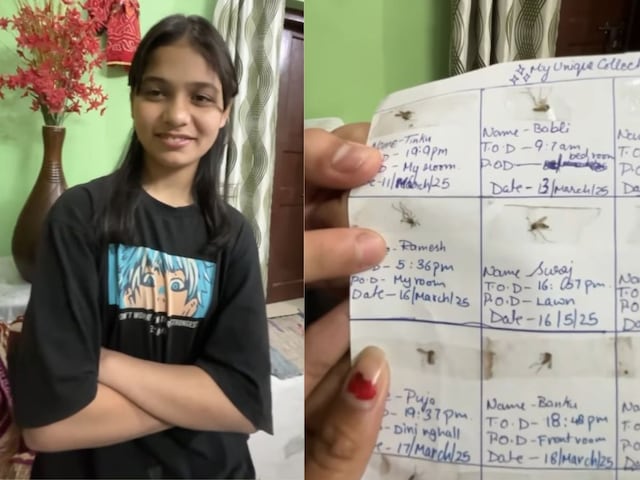 My Unique Collect
Name- Tinku
- 19:9pm
- My room
-11/March/25
Name- Babli
T.O.D - 9:7am
P.O.D- bedroom
Date- 13/March/25
- Ramesh
- 5:36pm
P.O.D- My room
Date- 16/March/25
Name Suraj
T.O.D- 16: 07pm
P.O.D- Lawn
Date- 16/5/25
- Puja
- 19:37pm
- Dininghall
- 17/March/25
Name- Bantu
T.O.D- 18:48pm
P.O.D- Front room
Date- 18/March/25
N
T.
P.
N
T.
P.
No
T.
P.